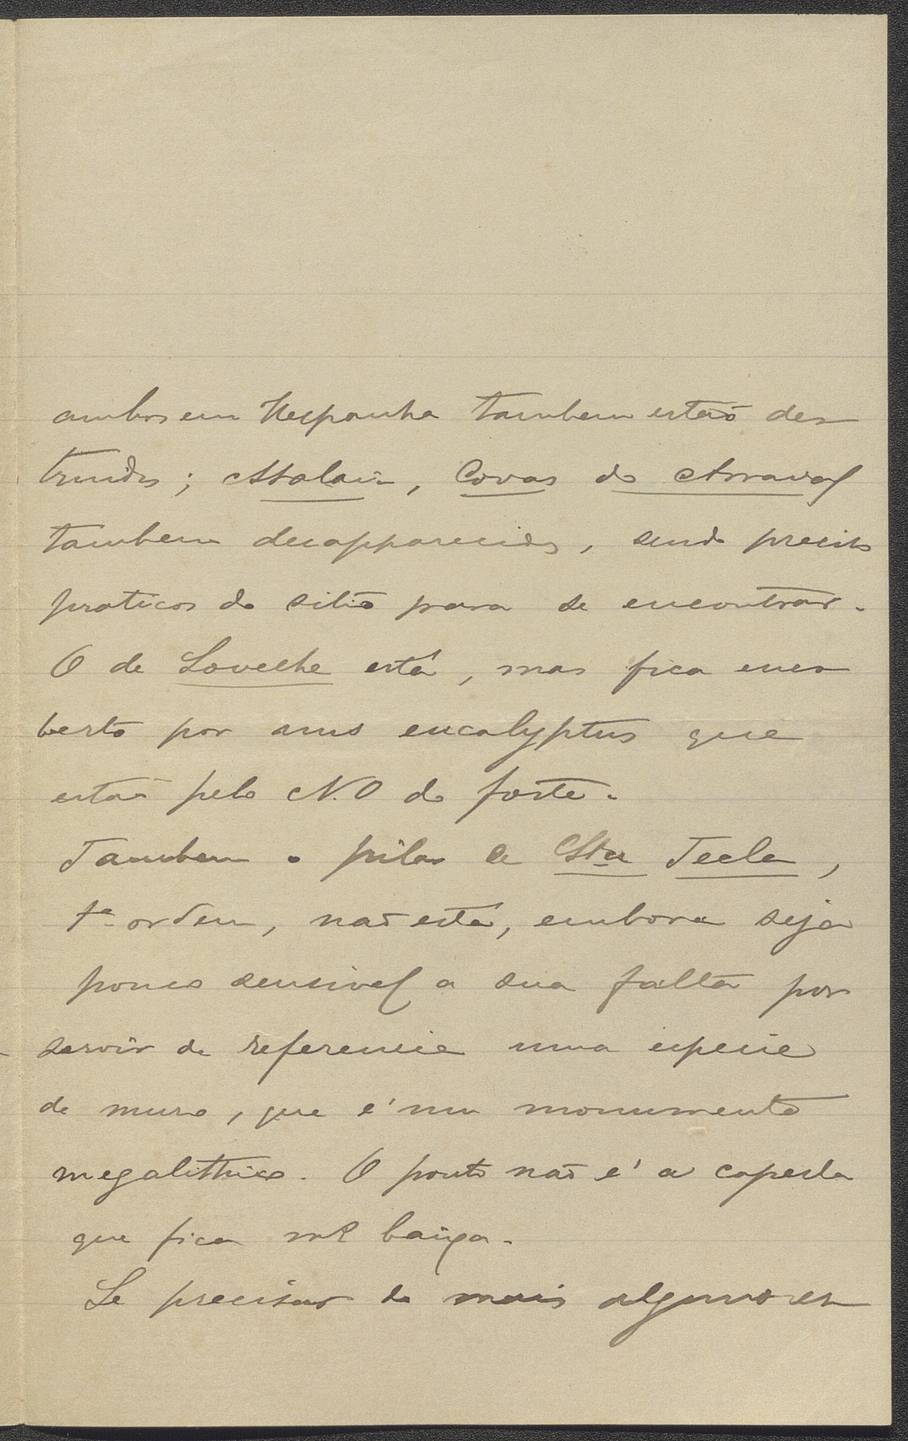 ambos em Hespanha tambem estão des
truidos; Atalaia, Covas do Arraval
tambem desapparecidos, sendo preciso
praticos do sitio para se encontrar.
O de Lovelhe está, mas fica enco
berto por uns eucalyptus que
estão pelo N.O do forte.
Tambem o pilar de Sta Tecla,
1ª ordem, não está, embora seja
pouco sensivel a sua falta por
servir de referencia uma especie
de muro, que é um monumento
megalithico. O ponto não é a capella
que fica mt baixa.
Se precisar de mais algum es